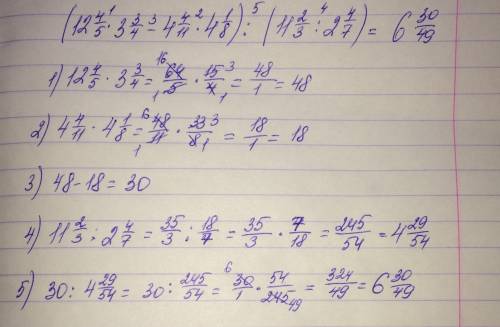 (12 4/5 · 3 3/4 − 4 4/11 · 4 1/8) : (11 2/3 : 2 4/7) = 6 30/49
1) 12 4/5 · 3 3/4 = 64/5 · 15/4 = 48/1 = 48
2) 4 4/11 · 4 1/8 = 48/11 · 33/8 = 18/1 = 18
3) 48 - 18 = 30
4) 11 2/3 : 2 4/7 = 35/3 : 18/7 = 35/3 · 7/18 = 245/54 = 4 29/54
5) 30 : 4 29/54 = 30 : 245/54 = 30/1 · 54/245 = 324/49 = 6 30/49